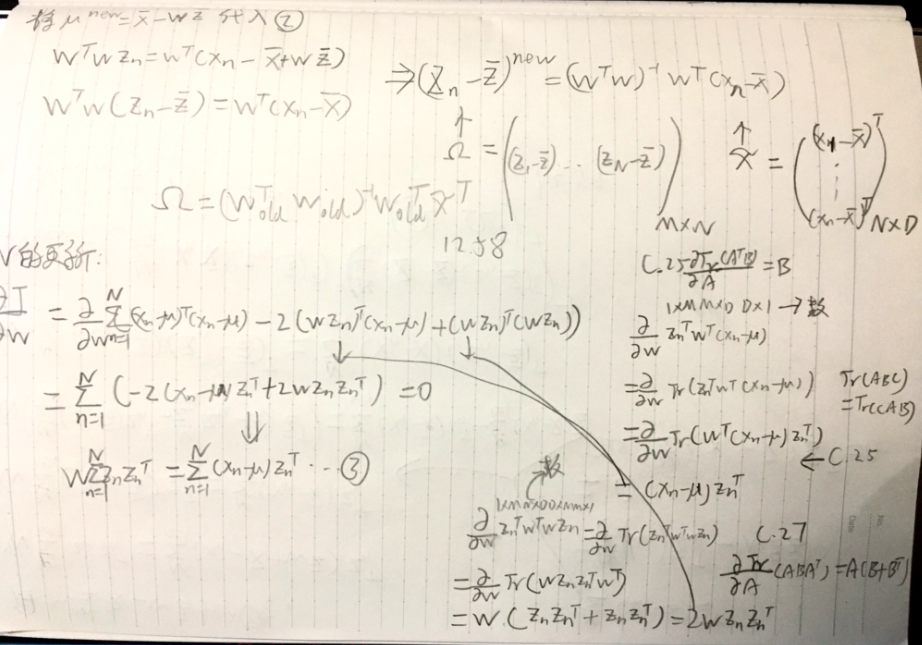 将μ^new = x̄ - Wz̄ 代入②
W^T W z_n = W^T(x_n - x̄ + W z̄)
W^T W(z_n - z̄) = W^T(x_n - x̄)
⇒ (z_n - z̄)^new = (W^T W)^-1 W^T(x_n - x̄)
↑
Ω = ((z_1 - z̄) ... (z_N - z̄))
M×N
↑
x̃ = ((x_1 - x̄)^T
⋮
(x_n - x̄)^T) N×D
Ω = (W_old^T W_old)^-1 W_old^T x̃^T
12.58
W的更新:
∂J/∂W = ∂/∂W Σ_{n=1}^N (x_n-μ)^T(x_n-μ) - 2(Wz_n)^T(x_n-μ) + (Wz_n)^T(Wz_n))
= Σ_{n=1}^N (-2(x_n-μ)z_n^T + 2W z_n z_n^T) = 0
⇓
W Σ_{n=1}^N z_n z_n^T = Σ_{n=1}^N (x_n-μ) z_n^T ... ③
C.25 ∂Tr(A^T B)/∂A = B
1×M M×D D×1 → 数
∂/∂W z_n^T W^T (x_n-μ)
= ∂/∂W Tr(z_n^T W^T (x_n-μ))
Tr(ABC)
= Tr(CAB)
= ∂/∂W Tr(W^T(x_n-μ) z_n^T)
← C.25
= (x_n-μ) z_n^T
数
1×M M×D D×M M×1
∂/∂W z_n^T W^T W z_n = ∂/∂W Tr(z_n^T W^T W z_n)
C.27
∂Tr/∂A (ABA^T) = A(B+B^T)
= ∂/∂W Tr(W z_n z_n^T W^T)
= W(z_n z_n^T + z_n z_n^T) = 2W z_n z_n^T
No.
Date